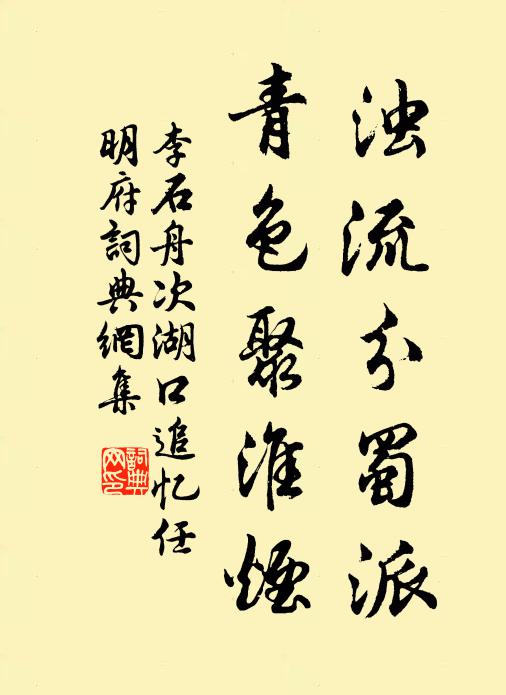 浊流分蜀派
青色聚淮烟
李石舟次湖口追忆任
明府詞典網集
詞典網印